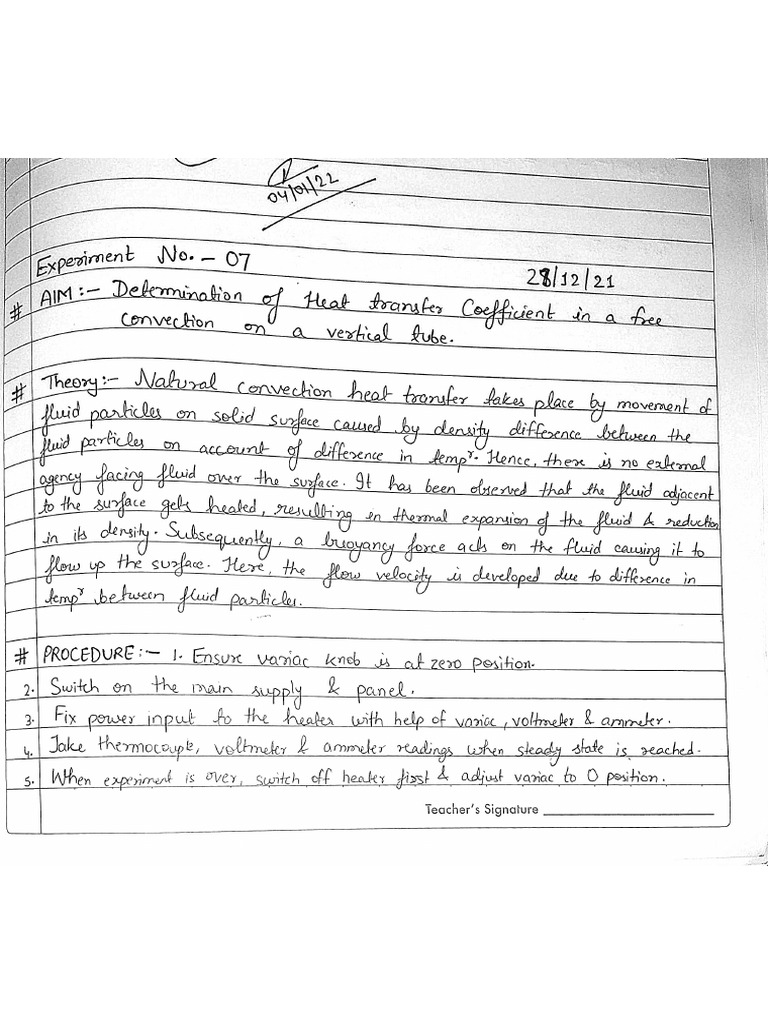 04/01/22
Experiment No. - 07
28/12/21
# AIM :- Determination of Heat transfer Coefficient in a free
convection on a vertical tube.
# Theory:- Natural convection heat transfer takes place by movement of
fluid particles on solid surface caused by density difference between the
fluid particles on account of difference in tempr. Hence, there is no external
agency facing fluid over the surface. It has been observed that the fluid adjacent
to the surface gets heated, resulting in thermal expansion of the fluid & reduction
in its density. Subsequently, a buoyancy force acts on the fluid causing it to
flow up the surface. Here, the flow velocity is developed due to difference in
tempr between fluid particles.
# PROCEDURE :- 1. Ensure variac knob is at zero position.
2. Switch on the main supply & panel.
3. Fix power input to the heater with help of variac, voltmeter & ammeter.
4. Take thermocouple, voltmeter & ammeter readings when steady state is reached.
5. When experiment is over, switch off heater first & adjust variac to 0 position.
Teacher's Signature